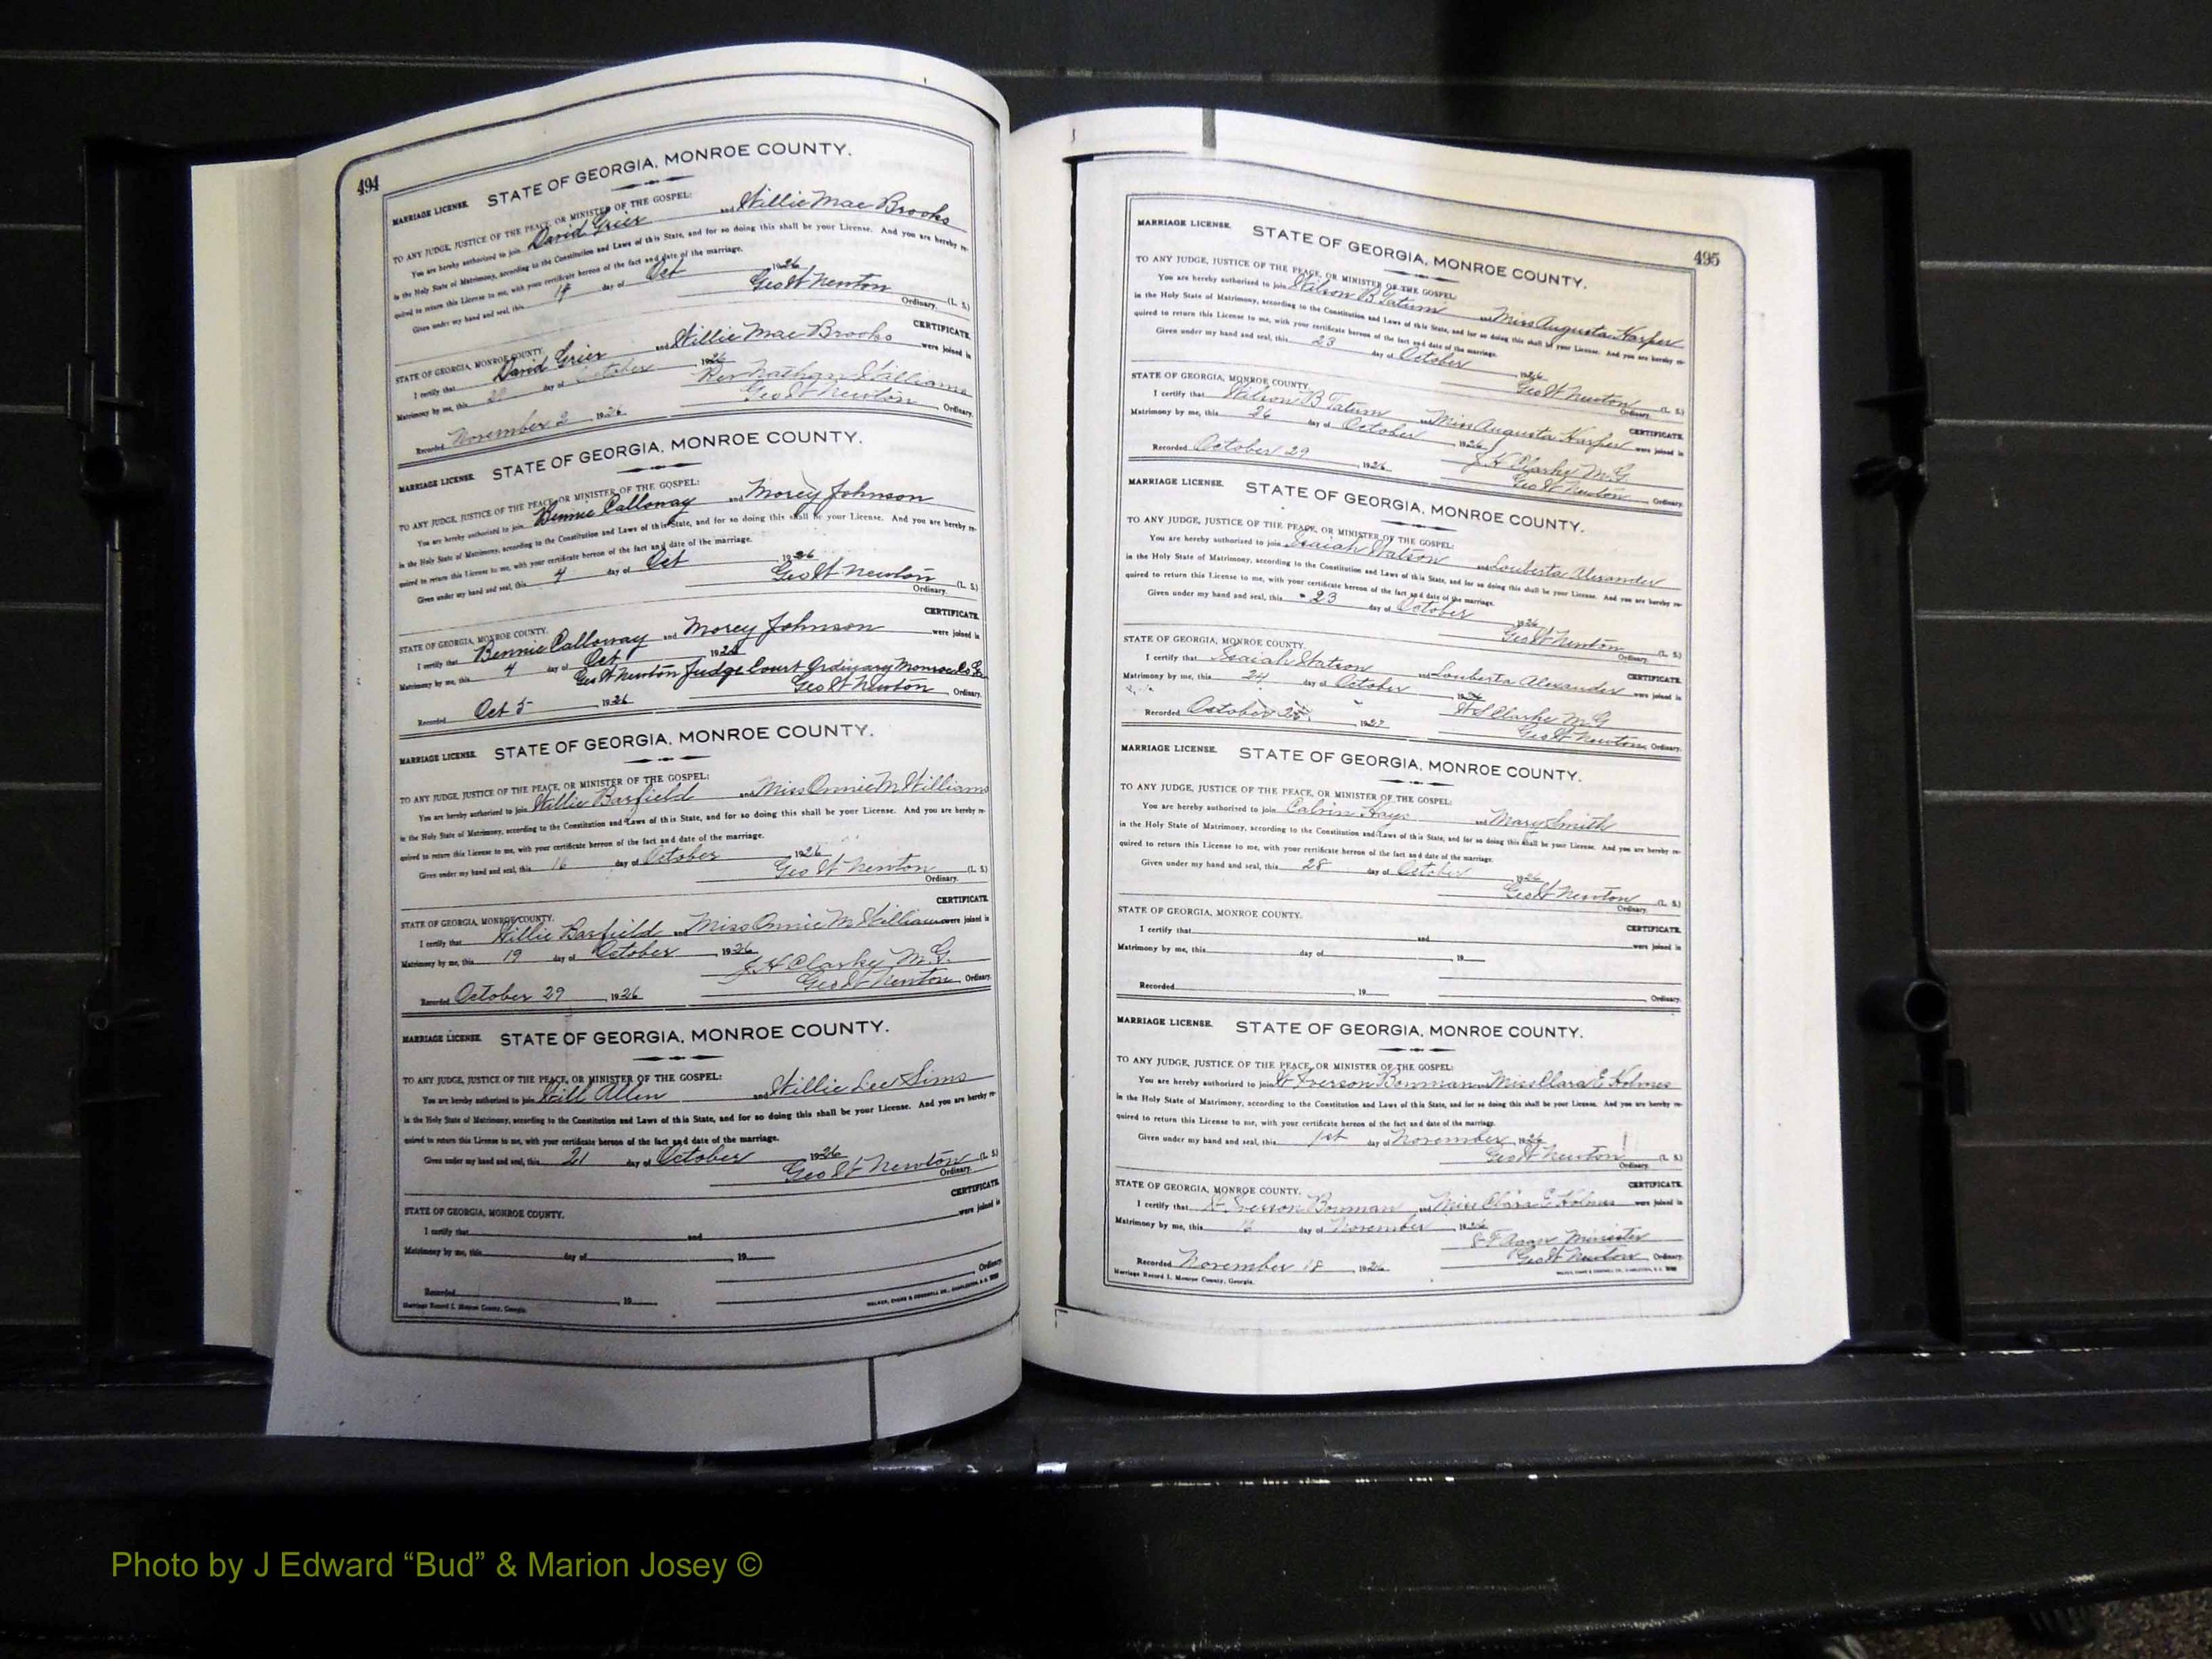 494
STATE OF GEORGIA, MONROE COUNTY.
MARRIAGE LICENSE.
TO ANY JUDGE, JUSTICE OF THE PEACE, OR MINISTER OF THE GOSPEL:
You are hereby authorized to join David Grier and Willie Mae Brooks
in the Holy State of Matrimony, according to the Constitution and Laws of this State, and for so doing this shall be your License. And you are hereby re-
quired to return this License to me, with your certificate hereon of the fact and date of the marriage.
Given under my hand and seal, this day of Oct 1926
Geo W Newton (L. S.)
Ordinary.
CERTIFICATE.
STATE OF GEORGIA, MONROE COUNTY.
I certify that David Grier and Willie Mae Brooks were joined in
Matrimony by me, this day of October 1926
Rev Nathan Williams
Recorded November 2 1926 Geo W Newton Ordinary.
STATE OF GEORGIA, MONROE COUNTY.
MARRIAGE LICENSE.
TO ANY JUDGE, JUSTICE OF THE PEACE, OR MINISTER OF THE GOSPEL:
You are hereby authorized to join Bennie Calloway and Morey Johnson
in the Holy State of Matrimony, according to the Constitution and Laws of this State, and for so doing this shall be your License. And you are hereby re-
quired to return this License to me, with your certificate hereon of the fact and date of the marriage.
Given under my hand and seal, this 4 day of Oct 1926
Geo W Newton (L. S.)
Ordinary.
CERTIFICATE.
STATE OF GEORGIA, MONROE COUNTY.
I certify that Bennie Calloway and Morey Johnson were joined in
Matrimony by me, this 4 day of Oct 1926
Geo W Newton Judge Court Ordinary Monroe Co Ga
Recorded Oct 5 1926 Geo W Newton Ordinary.
STATE OF GEORGIA, MONROE COUNTY.
MARRIAGE LICENSE.
TO ANY JUDGE, JUSTICE OF THE PEACE, OR MINISTER OF THE GOSPEL:
You are hereby authorized to join Willie Barfield and Miss Onnie M Williams
in the Holy State of Matrimony, according to the Constitution and Laws of this State, and for so doing this shall be your License. And you are hereby re-
quired to return this License to me, with your certificate hereon of the fact and date of the marriage.
Given under my hand and seal, this 16 day of October 1926
Geo W Newton (L. S.)
Ordinary.
CERTIFICATE.
STATE OF GEORGIA, MONROE COUNTY.
I certify that Willie Barfield and Miss Onnie M Williams were joined in
Matrimony by me, this 19 day of October, 1926
J. H Clarke M. G.
Recorded October 29, 1926 Geo W Newton, Ordinary.
STATE OF GEORGIA, MONROE COUNTY.
MARRIAGE LICENSE.
TO ANY JUDGE, JUSTICE OF THE PEACE, OR MINISTER OF THE GOSPEL:
You are hereby authorized to join Will Allen and Willie Lee Sims
in the Holy State of Matrimony, according to the Constitution and Laws of this State, and for so doing this shall be your License. And you are hereby re-
quired to return this License to me, with your certificate hereon of the fact and date of the marriage.
Given under my hand and seal, this 21 day of October 1926
Geo W Newton (L. S.)
Ordinary.
CERTIFICATE.
STATE OF GEORGIA, MONROE COUNTY.
I certify that and were joined in
Matrimony by me, this day of 19
Ordinary.
Recorded , 19
Marriage Record I. Monroe County, Georgia.
495
MARRIAGE LICENSE.
STATE OF GEORGIA, MONROE COUNTY.
TO ANY JUDGE, JUSTICE OF THE PEACE, OR MINISTER OF THE GOSPEL:
You are hereby authorized to join Wilson B Tatum and Miss Augusta Harper
in the Holy State of Matrimony, according to the Constitution and Laws of this State, and for so doing this shall be your License. And you are hereby re-
quired to return this License to me, with your certificate hereon of the fact and date of the marriage.
Given under my hand and seal, this 23 day of October, 1926
Geo W Newton (L. S.)
Ordinary.
STATE OF GEORGIA, MONROE COUNTY.
CERTIFICATE.
I certify that Wilson B Tatum and Miss Augusta Harper were joined in
Matrimony by me, this 26 day of October, 1926
J. H Clarke M. G.
Recorded October 29, 1926 Geo W Newton, Ordinary.
MARRIAGE LICENSE.
STATE OF GEORGIA, MONROE COUNTY.
TO ANY JUDGE, JUSTICE OF THE PEACE, OR MINISTER OF THE GOSPEL:
You are hereby authorized to join Isaiah Watson and Louberta Alexander
in the Holy State of Matrimony, according to the Constitution and Laws of this State, and for so doing this shall be your License. And you are hereby re-
quired to return this License to me, with your certificate hereon of the fact and date of the marriage.
Given under my hand and seal, this 23 day of October 1926
Geo W Newton (L. S.)
Ordinary.
STATE OF GEORGIA, MONROE COUNTY.
CERTIFICATE.
I certify that Isaiah Watson and Louberta Alexander were joined in
Matrimony by me, this 24 day of October
Clarke M G
Recorded October 1927 Geo W Newton, Ordinary.
MARRIAGE LICENSE.
STATE OF GEORGIA, MONROE COUNTY.
TO ANY JUDGE, JUSTICE OF THE PEACE, OR MINISTER OF THE GOSPEL:
You are hereby authorized to join Calvin Hays and Mary Smith
in the Holy State of Matrimony, according to the Constitution and Laws of this State, and for so doing this shall be your License. And you are hereby re-
quired to return this License to me, with your certificate hereon of the fact and date of the marriage.
Given under my hand and seal, this 28 day of October, 1926
Geo W Newton (L. S.)
Ordinary.
STATE OF GEORGIA, MONROE COUNTY.
CERTIFICATE.
I certify that and were joined in
Matrimony by me, this day of , 19
Recorded , 19 Ordinary.
MARRIAGE LICENSE.
STATE OF GEORGIA, MONROE COUNTY.
TO ANY JUDGE, JUSTICE OF THE PEACE, OR MINISTER OF THE GOSPEL:
You are hereby authorized to join W Iverson Bowman and Miss Clara E Holmes
in the Holy State of Matrimony, according to the Constitution and Laws of this State, and for so doing this shall be your License. And you are hereby re-
quired to return this License to me, with your certificate hereon of the fact and date of the marriage.
Given under my hand and seal, this 1st day of November, 1926
Geo W Newton (L. S.)
Ordinary.
STATE OF GEORGIA, MONROE COUNTY.
CERTIFICATE.
I certify that W Iverson Bowman and Miss Clara E Holmes were joined in
Matrimony by me, this 16 day of November, 1926
Minister
Recorded November 18, 1926 Geo W Newton Ordinary.
Marriage Record I. Monroe County, Georgia.
Photo by J Edward “Bud” & Marion Josey ©